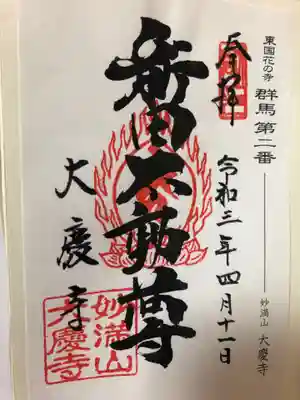 東国花の寺 群馬第二番 妙満山 大慶寺
奉拝
令和三年四月十一日
新田不動尊
大慶寺
妙満山
大慶寺